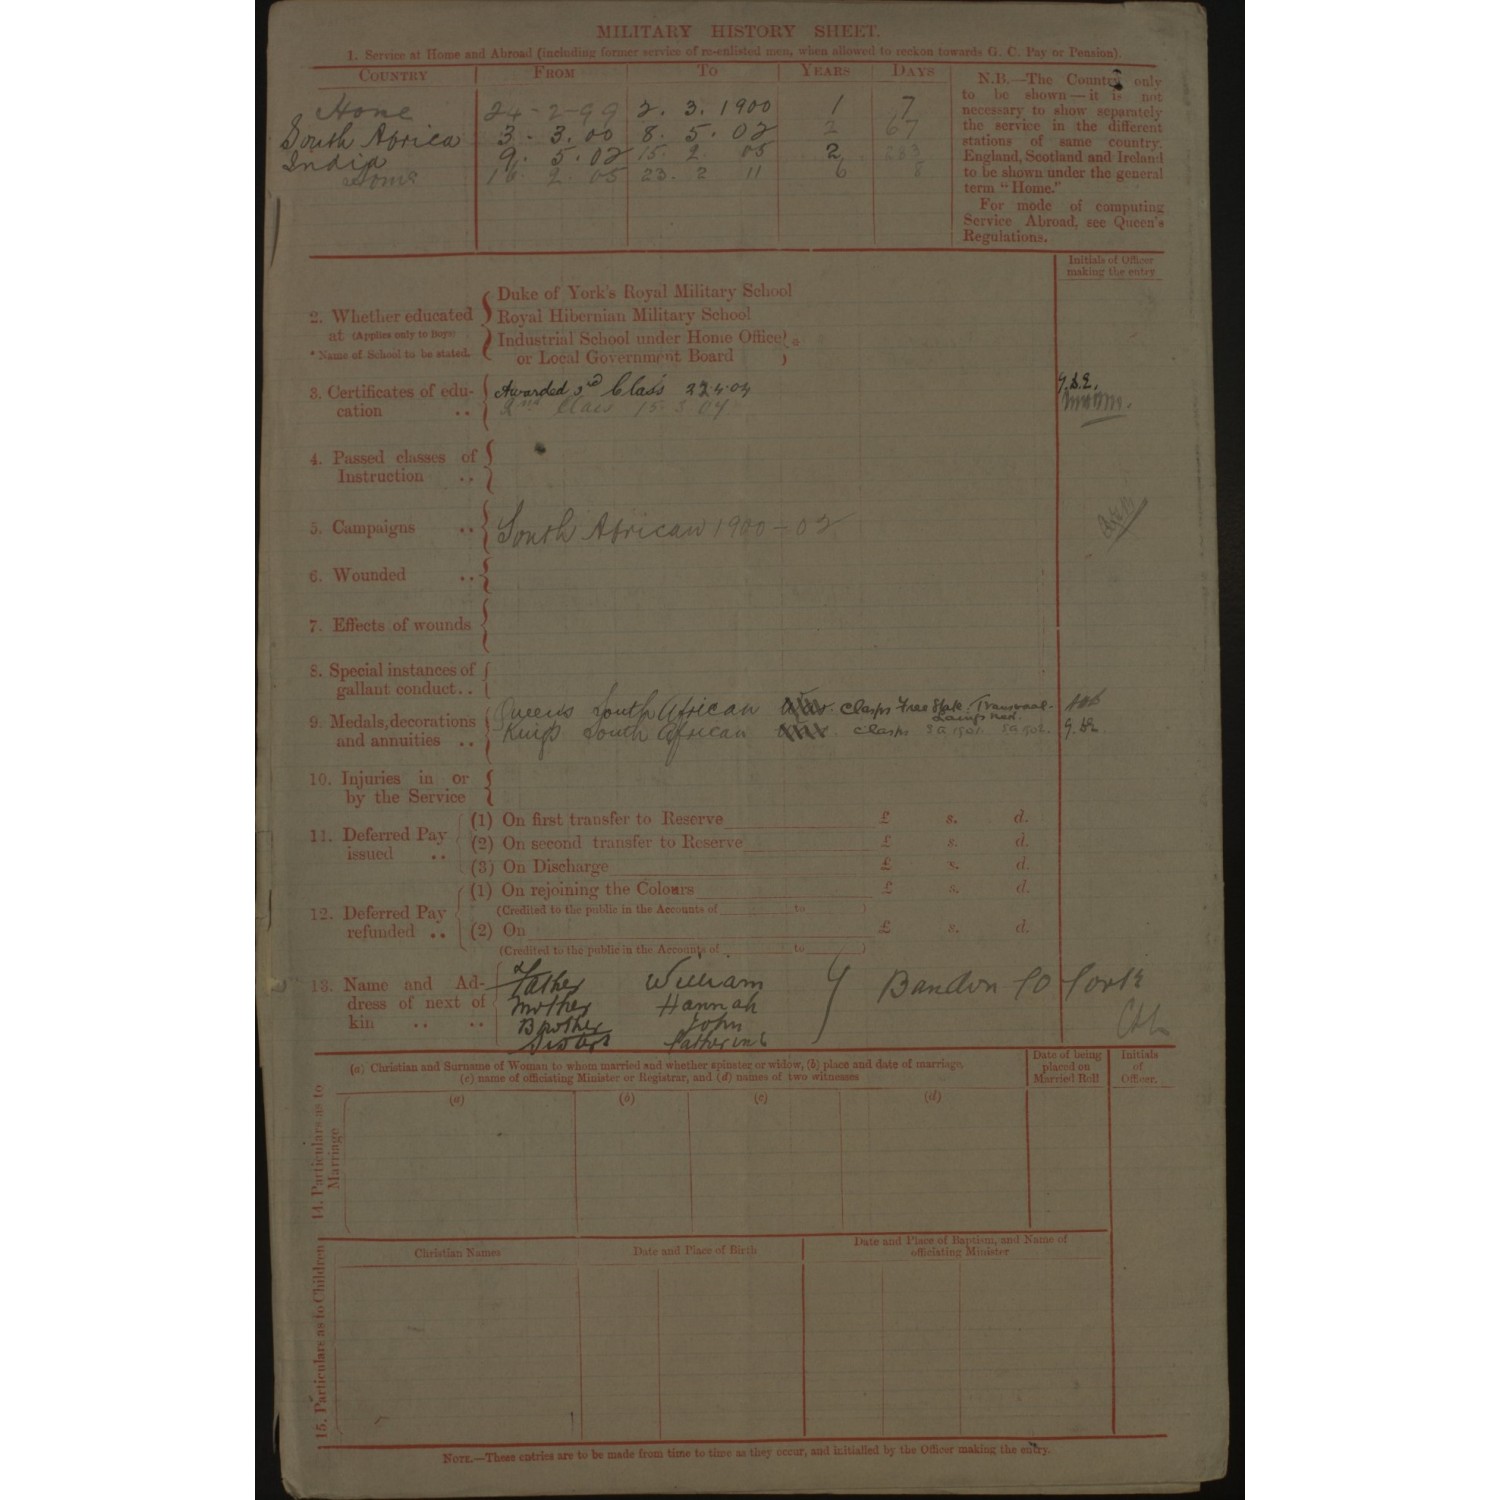 MILITARY HISTORY SHEET.
1. Service at Home and Abroad (including former service of re-enlisted men, when allowed to reckon towards G. C. Pay or Pension).
COUNTRY FROM TO YEARS DAYS
Home 24-2-99 2. 3. 1900 1 7
South Africa 3. 3. 00 8. 5. 02 2 67
India 9. 5. 02 15. 2. 05 2 283
Home 16. 2. 05 23. 2 11 6 8
N.B.—The Country only
to be shown—it is not
necessary to show separately
the service in the different
stations of same country.
England, Scotland and Ireland
to be shown under the general
term "Home."
For mode of computing
Service Abroad, see Queen's
Regulations.
Initials of Officer
making the entry
2. Whether educated
at (Applies only to Boys)
* Name of School to be stated.
Duke of York's Royal Military School
Royal Hibernian Military School
Industrial School under Home Office
or Local Government Board
*
3. Certificates of edu-
cation ..
Awarded 3rd Class 22.4.04
2nd Class 15.3.07
4. Passed classes of
Instruction ..
5. Campaigns ..
South African 1900-02
6. Wounded ..
7. Effects of wounds
8. Special instances of
gallant conduct..
9. Medals, decorations
and annuities ..
Queens South African Clasps Free State. Transvaal.
Laings Nek.
Kings South African Clasps SA 1901. SA 1902.
10. Injuries in or
by the Service
11. Deferred Pay
issued ..
(1) On first transfer to Reserve £ s. d.
(2) On second transfer to Reserve £ s. d.
(3) On Discharge £ s. d.
12. Deferred Pay
refunded ..
(1) On rejoining the Colours £ s. d.
(Credited to the public in the Accounts of to )
(2) On £ s. d.
(Credited to the public in the Accounts of to )
13. Name and Ad-
dress of next of
kin .. ..
Father William
Mother Hannah
Brother John
Sister Catherine
Bandon Co Cork
14. Particulars as to
Marriage
(a) Christian and Surname of Woman to whom married and whether spinster or widow, (b) place and date of marriage,
(c) name of officiating Minister or Registrar, and (d) names of two witnesses
Date of being
placed on
Married Roll
Initials
of
Officer.
(a) (b) (c) (d)
15. Particulars as to Children
Christian Names
Date and Place of Birth
Date and Place of Baptism, and Name of
officiating Minister
NOTE.—These entries are to be made from time to time as they occur, and initialled by the Officer making the entry.